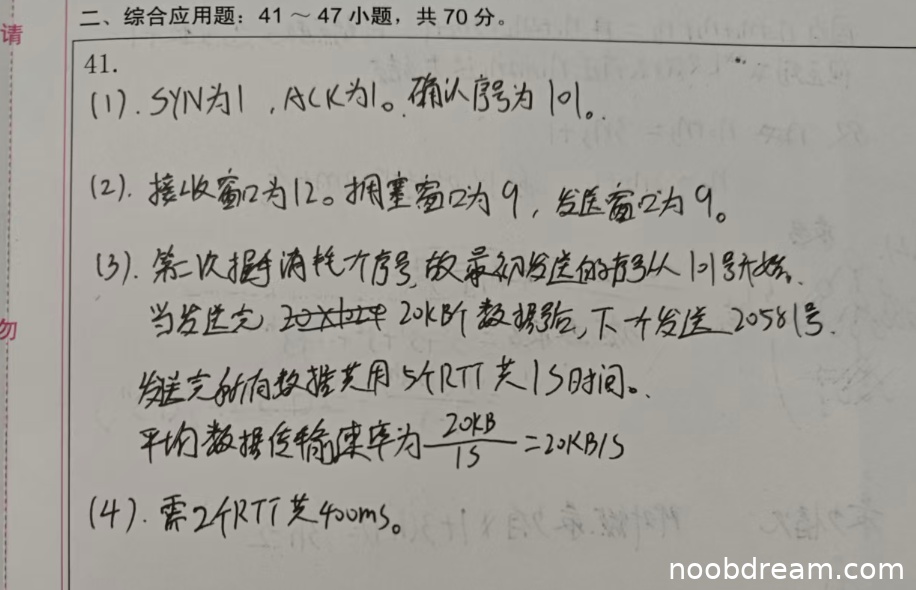 请
勿
二、综合应用题：41 ～ 47 小题，共 70 分。
41.
(1). SYN为1，ACK为1。确认序号为101。
(2). 接收窗口为12。拥塞窗口为9，发送窗口为9。
(3). 第二次握手消耗一个序号,故最初发送的序号从101号开始。
当发送完 20×1024 20KB个数据后,下一个发送 20581号.
发送完所有数据共用5个RTT共1S时间。
平均数据传输速率为 20KB/1S =20KB/S
(4). 需2个RTT共400ms。
noobdream.com